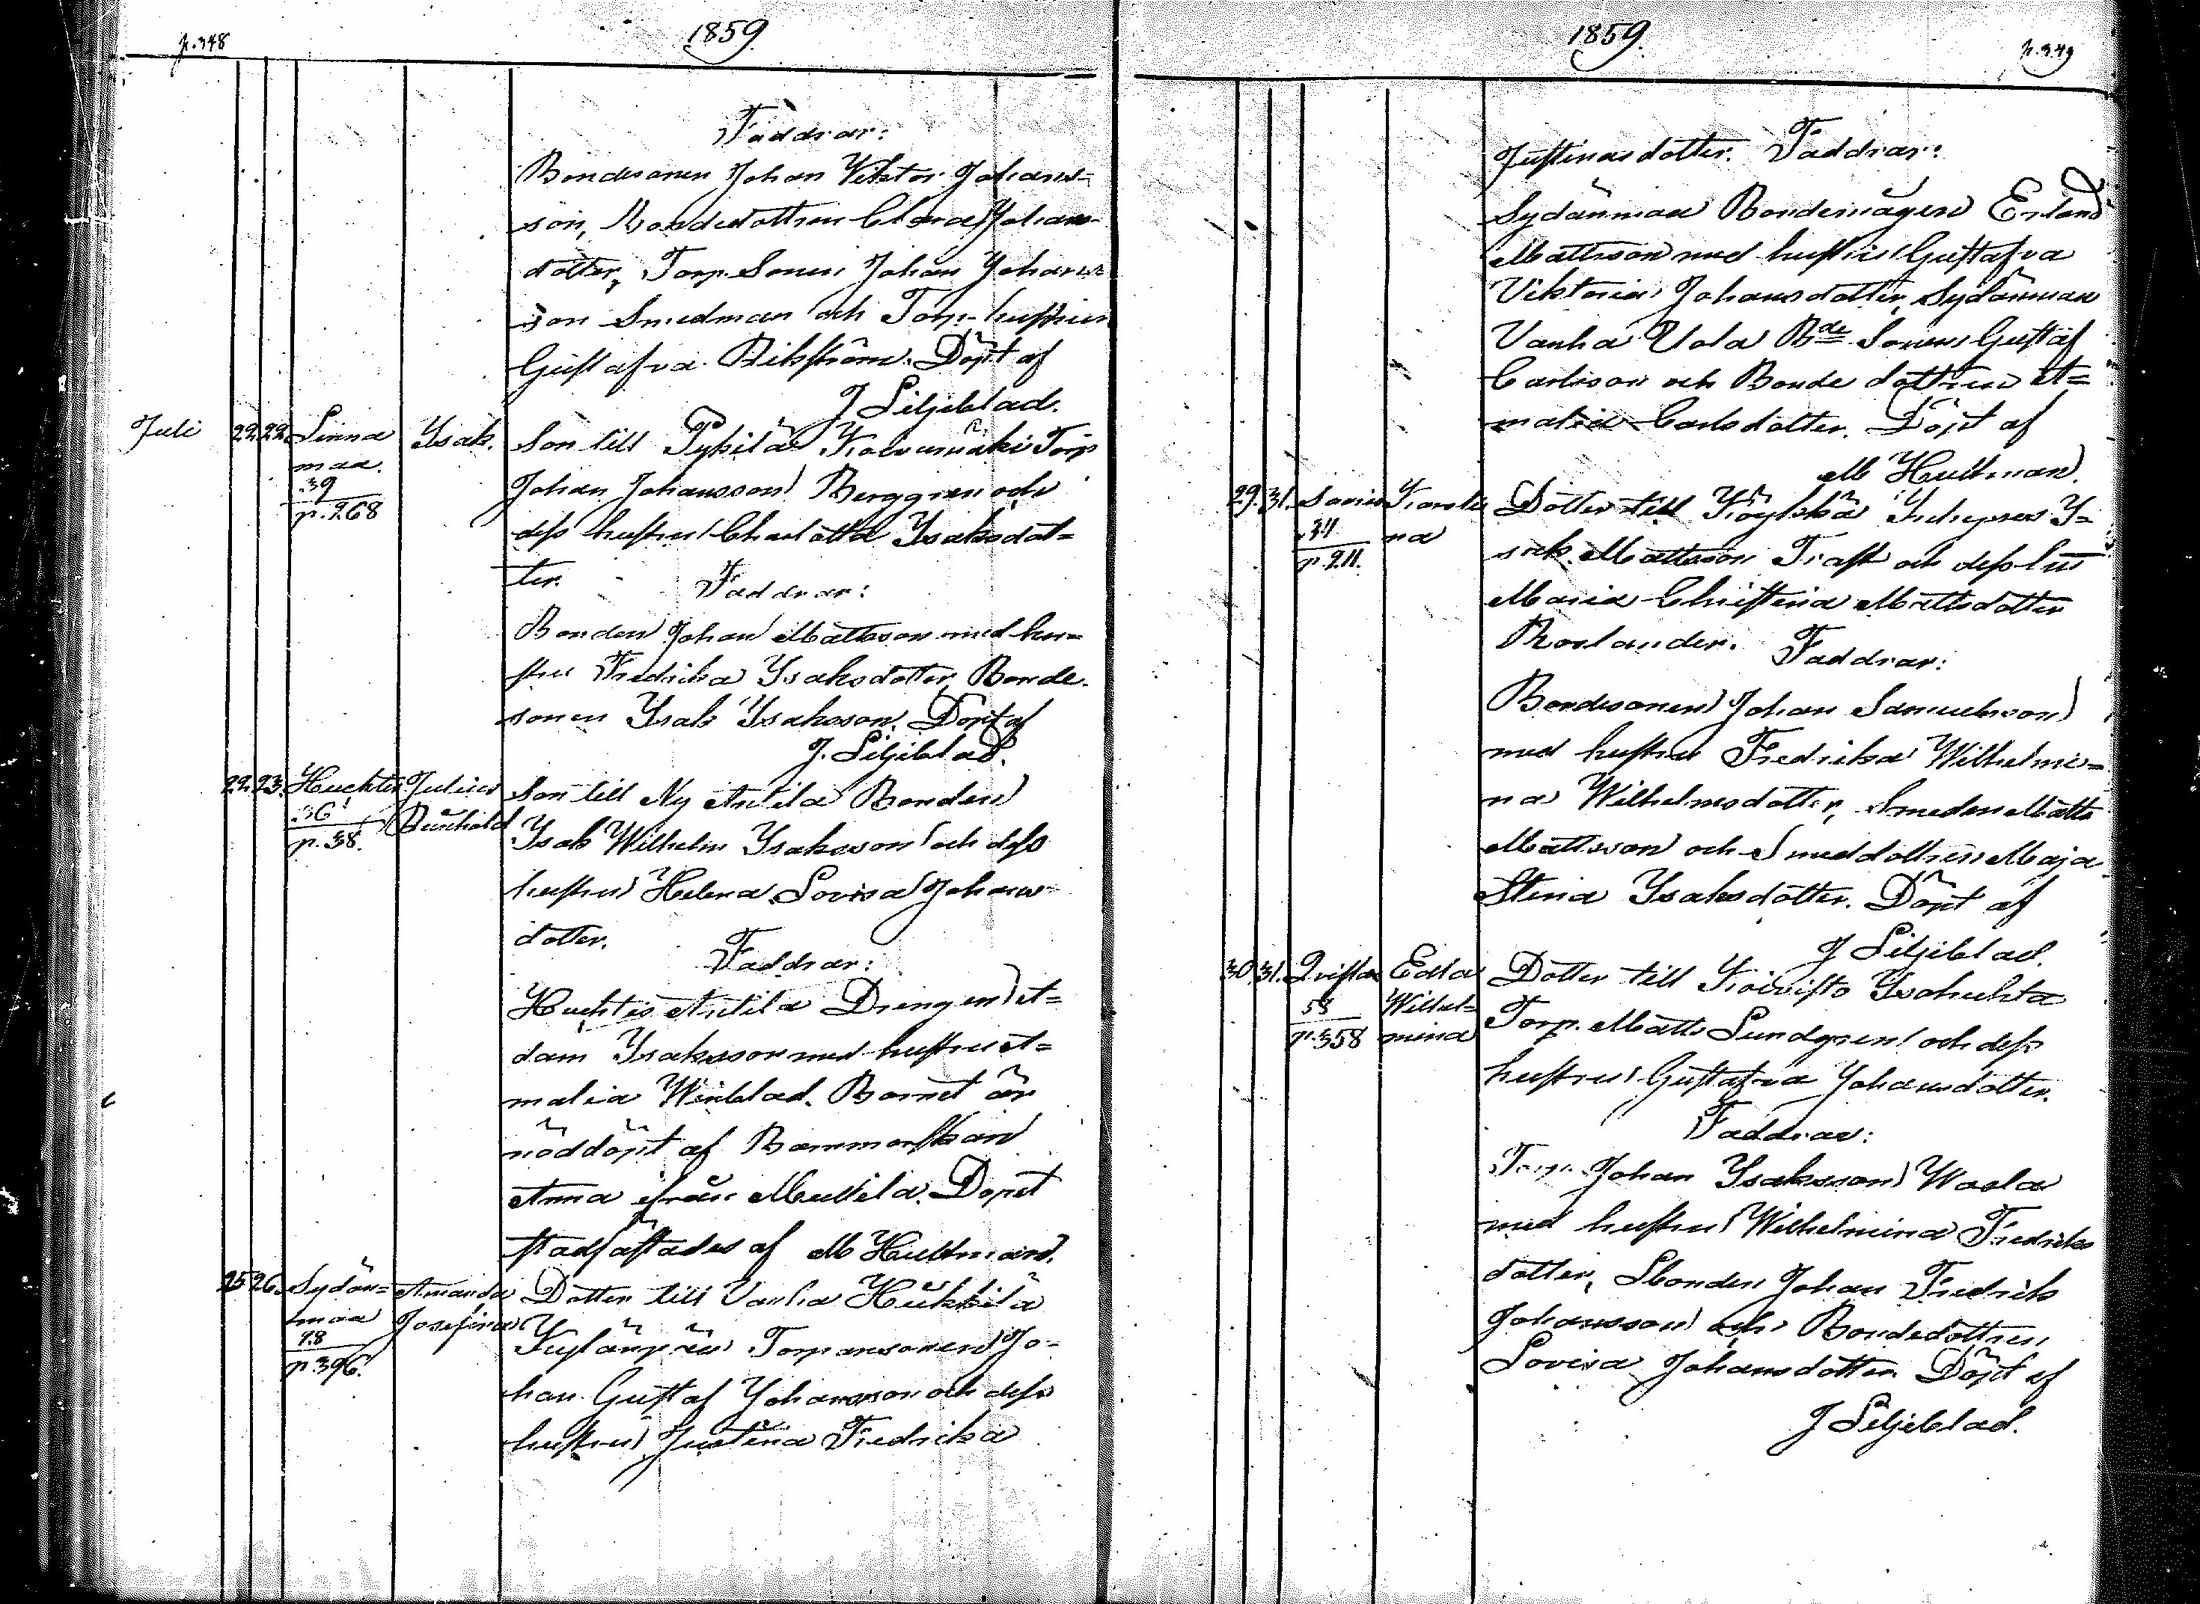 p. 348
1859
Faddrar:
Bondesonen Johan Viktor Johans=
son, Bondedottren Clara Johans-
dotter, Torp. Sonen Johan Johans
son Smedman och Torp. hustrun
Gustafva Rikström. Döpt af
J Liljeblad.
Juli 22. 22. Linna Isak. Son till Pykilä Torp
maa.
39
p. 268
Johan Johansson Berggren och
dess hustru Charlotta Isaksdot=
ter. Faddrar:
Bonden Johan Mattsson med hu=
stru Fredrika Isaksdotter, Bonde-
sonen Isak Isaksson. Döpt af
J. Liljeblad.
22. 23. Huchtis Julius Son till Ny Antila Bonden
36 Reinhold
p. 38.
Isak Wilhelm Isaksson och dess
hustru Helena Lovisa Johans
dotter.
Faddrar:
Huchtis Antila Drengen A=
dam Isaksson med hustru A=
malia Winblad. Barnet är
nöddöpt af Barnmorskan
Anna ifrån Mullila. Dopet
stadfästades af M Hultman.
25 26. Sydän= Amanda Dotter till Vanha Hukkila
maa Josefina
18
p. 396.
Torparesonen Jo-
han Gustaf Johansson och dess
hustru Justina Fredrika
1859.
p. 349
Justinasdotter. Faddrar:
Sydänmaa Bondemågen Erland
Mattsson med hustru Gustafva
Viktoria Johansdotter, Sydänmaa
Vanha Yola Bde Sonen Gustaf
Carlsson och Bonde dottren A=
malia Carlsdotter. Döpt af
M Hultman.
29. 31. Savis Karoli Dotter till Köylskä I=
34 na
p. 211.
sak Mattsson Trast och dess hu
Maria Christina Mattsdotter
Roslander. Faddrar:
Bondesonen Johan Samuelsson
med hustru Fredrika Wilhelmi=
na Wilhelmsdotter, Smeden Matts
Mattsson och Smeddottren Maja
Stina Isaksdotter. Döpt af
J Liljeblad.
30. 31. Qvista Edla Dotter till Koivisto Isohuhta
53 Wilhel=
p. 358 mina
Torp. Matts Lundgren och dess
hustru Gustafva Johansdotter.
Faddrar:
Torp. Johan Isaksson Wasla
med hustru Wilhelmina Fredriks
dotter, Sbonden Johan Fredrik
Johansson och Bondedottren
Lovisa Johansdotter Döpt af
J Liljeblad.